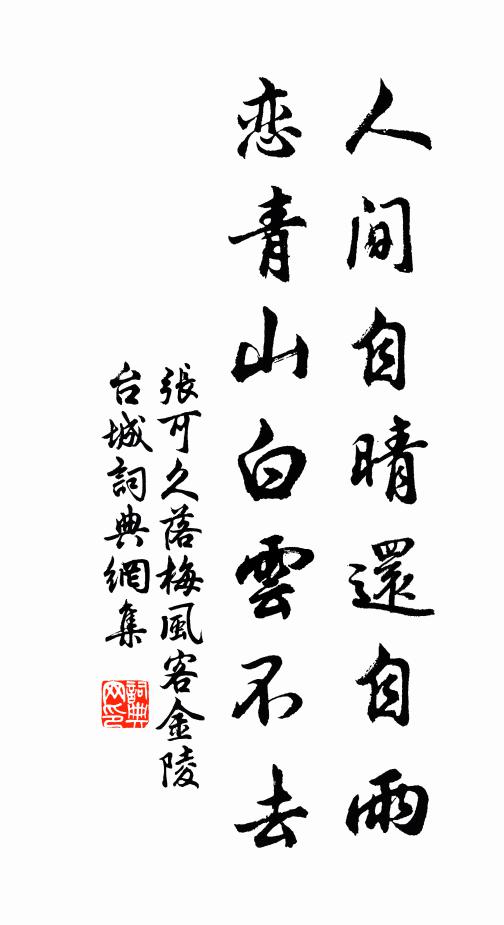 人间自晴還自雨
恋青山白雲不去
張可久落梅風客金陵
台城詞典網集
詞典网印